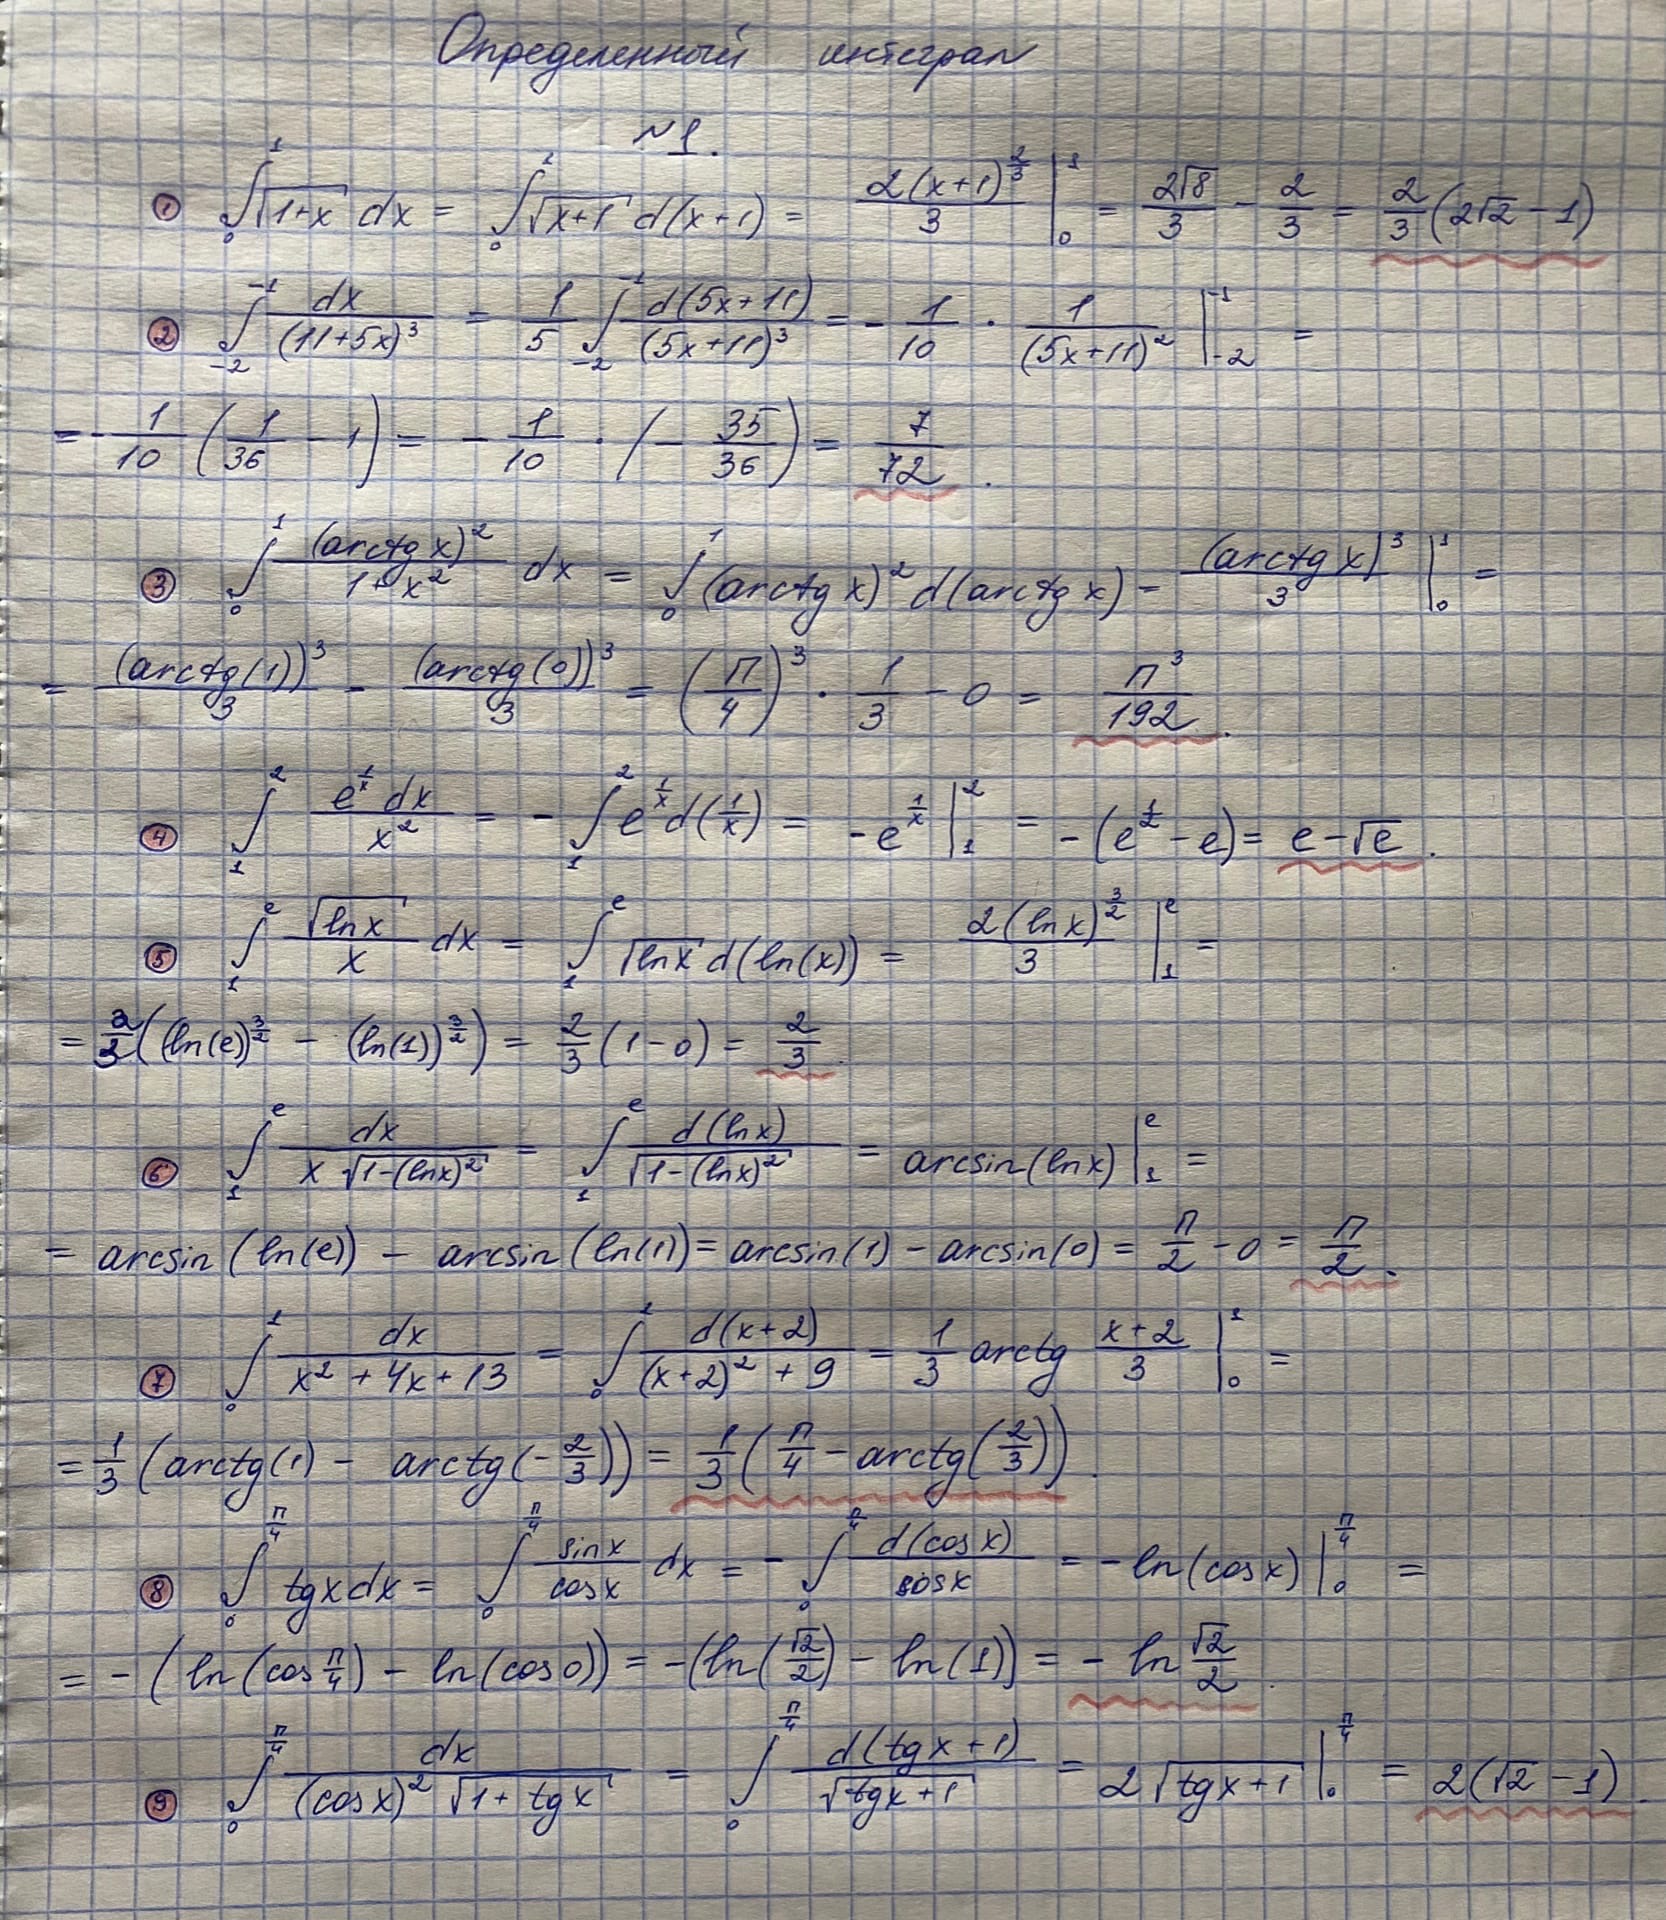 Определенный интеграл
№1.
① ∫₀¹ √(1+x) dx = ∫₀¹ √(x+1) d(x+1) = 2(x+1)^(2/3)/3 |₀¹ = 2√8/3 - 2/3 = 2/3 (2√2 - 1)
② ∫₋₂⁻¹ dx/(11+5x)³ = 1/5 ∫₋₂⁻¹ d(5x+11)/(5x+11)³ = - 1/10 · 1/(5x+11)² |₋₂⁻¹ =
= - 1/10 (1/36 - 1) = - 1/10 · (- 35/36) = 7/72.
③ ∫₀¹ (arctg x)²/(1+x²) dx = ∫₀¹ (arctg x)² d(arctg x) = (arctg x)³/3 |₀¹ =
= (arctg(1))³/3 - (arctg(0))³/3 = (π/4)³ · 1/3 - 0 = π³/192.
④ ∫₁² e^(1/x) dx/x² = - ∫₁² e^(1/x) d(1/x) = -e^(1/x) |₁² = -(e^(1/2) - e) = e - √e.
⑤ ∫₁ᵉ √(ln x)/x dx = ∫₁ᵉ √(ln x) d(ln(x)) = 2(ln x)^(3/2)/3 |₁ᵉ =
= 2/3 ((ln(e))^(3/2) - (ln(1))^(3/2)) = 2/3 (1-0) = 2/3.
⑥ ∫₁ᵉ dx/(x √(1-(ln x)²)) = ∫₁ᵉ d(ln x)/√(1-(ln x)²) = arcsin(ln x) |₁ᵉ =
= arcsin(ln(e)) - arcsin(ln(1)) = arcsin(1) - arcsin(0) = π/2 - 0 = π/2.
⑦ ∫₀¹ dx/(x² + 4x + 13) = ∫₀¹ d(x+2)/((x+2)² + 9) = 1/3 arctg (x+2)/3 |₀¹ =
= 1/3 (arctg(1) - arctg(-2/3)) = 1/3 (π/4 - arctg(2/3)).
⑧ ∫₀^(π/4) tg x dx = ∫₀^(π/4) sin x/cos x dx = - ∫₀^(π/4) d(cos x)/cos x = - ln(cos x) |₀^(π/4) =
= - (ln(cos π/4) - ln(cos 0)) = -(ln(√2/2) - ln(1)) = - ln √2/2.
⑨ ∫₀^(π/4) dx/((cos x)² √(1+tg x)) = ∫₀^(π/4) d(tg x + 1)/√(tg x + 1) = 2√(tg x + 1) |₀^(π/4) = 2(√2 - 1).